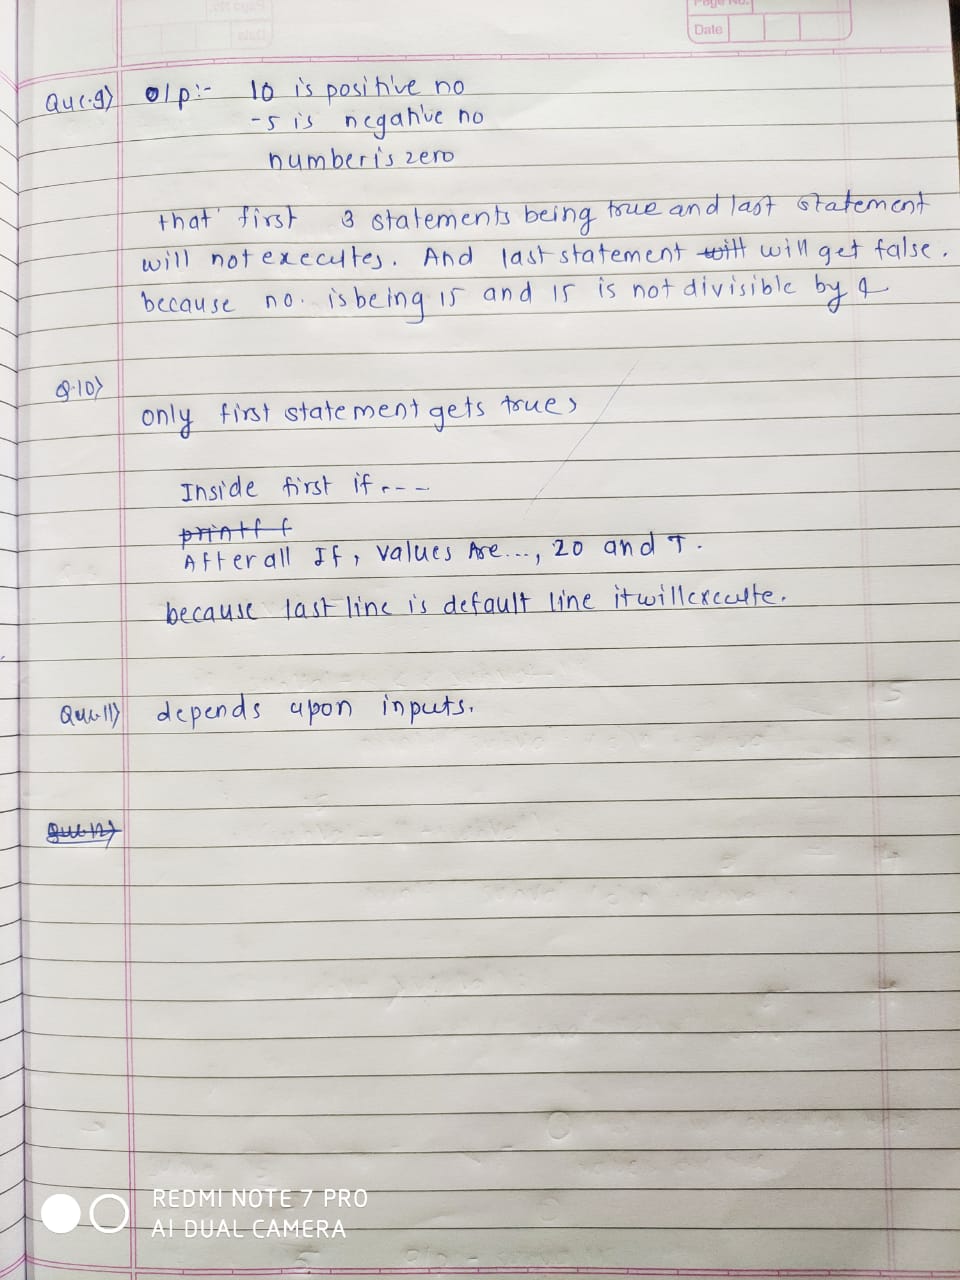 Page No.
Date
Que.9) o/p:- 10 is positive no
-5 is negative no
number is zero
that first 3 statements being true and last statement
will not executes. And last statement will will get false.
because no. is being 15 and 15 is not divisible by
Q.10)
only first statement gets true,
Inside first if ---
printf f
After all If, values Are..., 20 and
because last line is default line it will execute.
Que.11) depends upon inputs.
Que.12)
REDMI NOTE 7 PRO
AI DUAL CAMERA